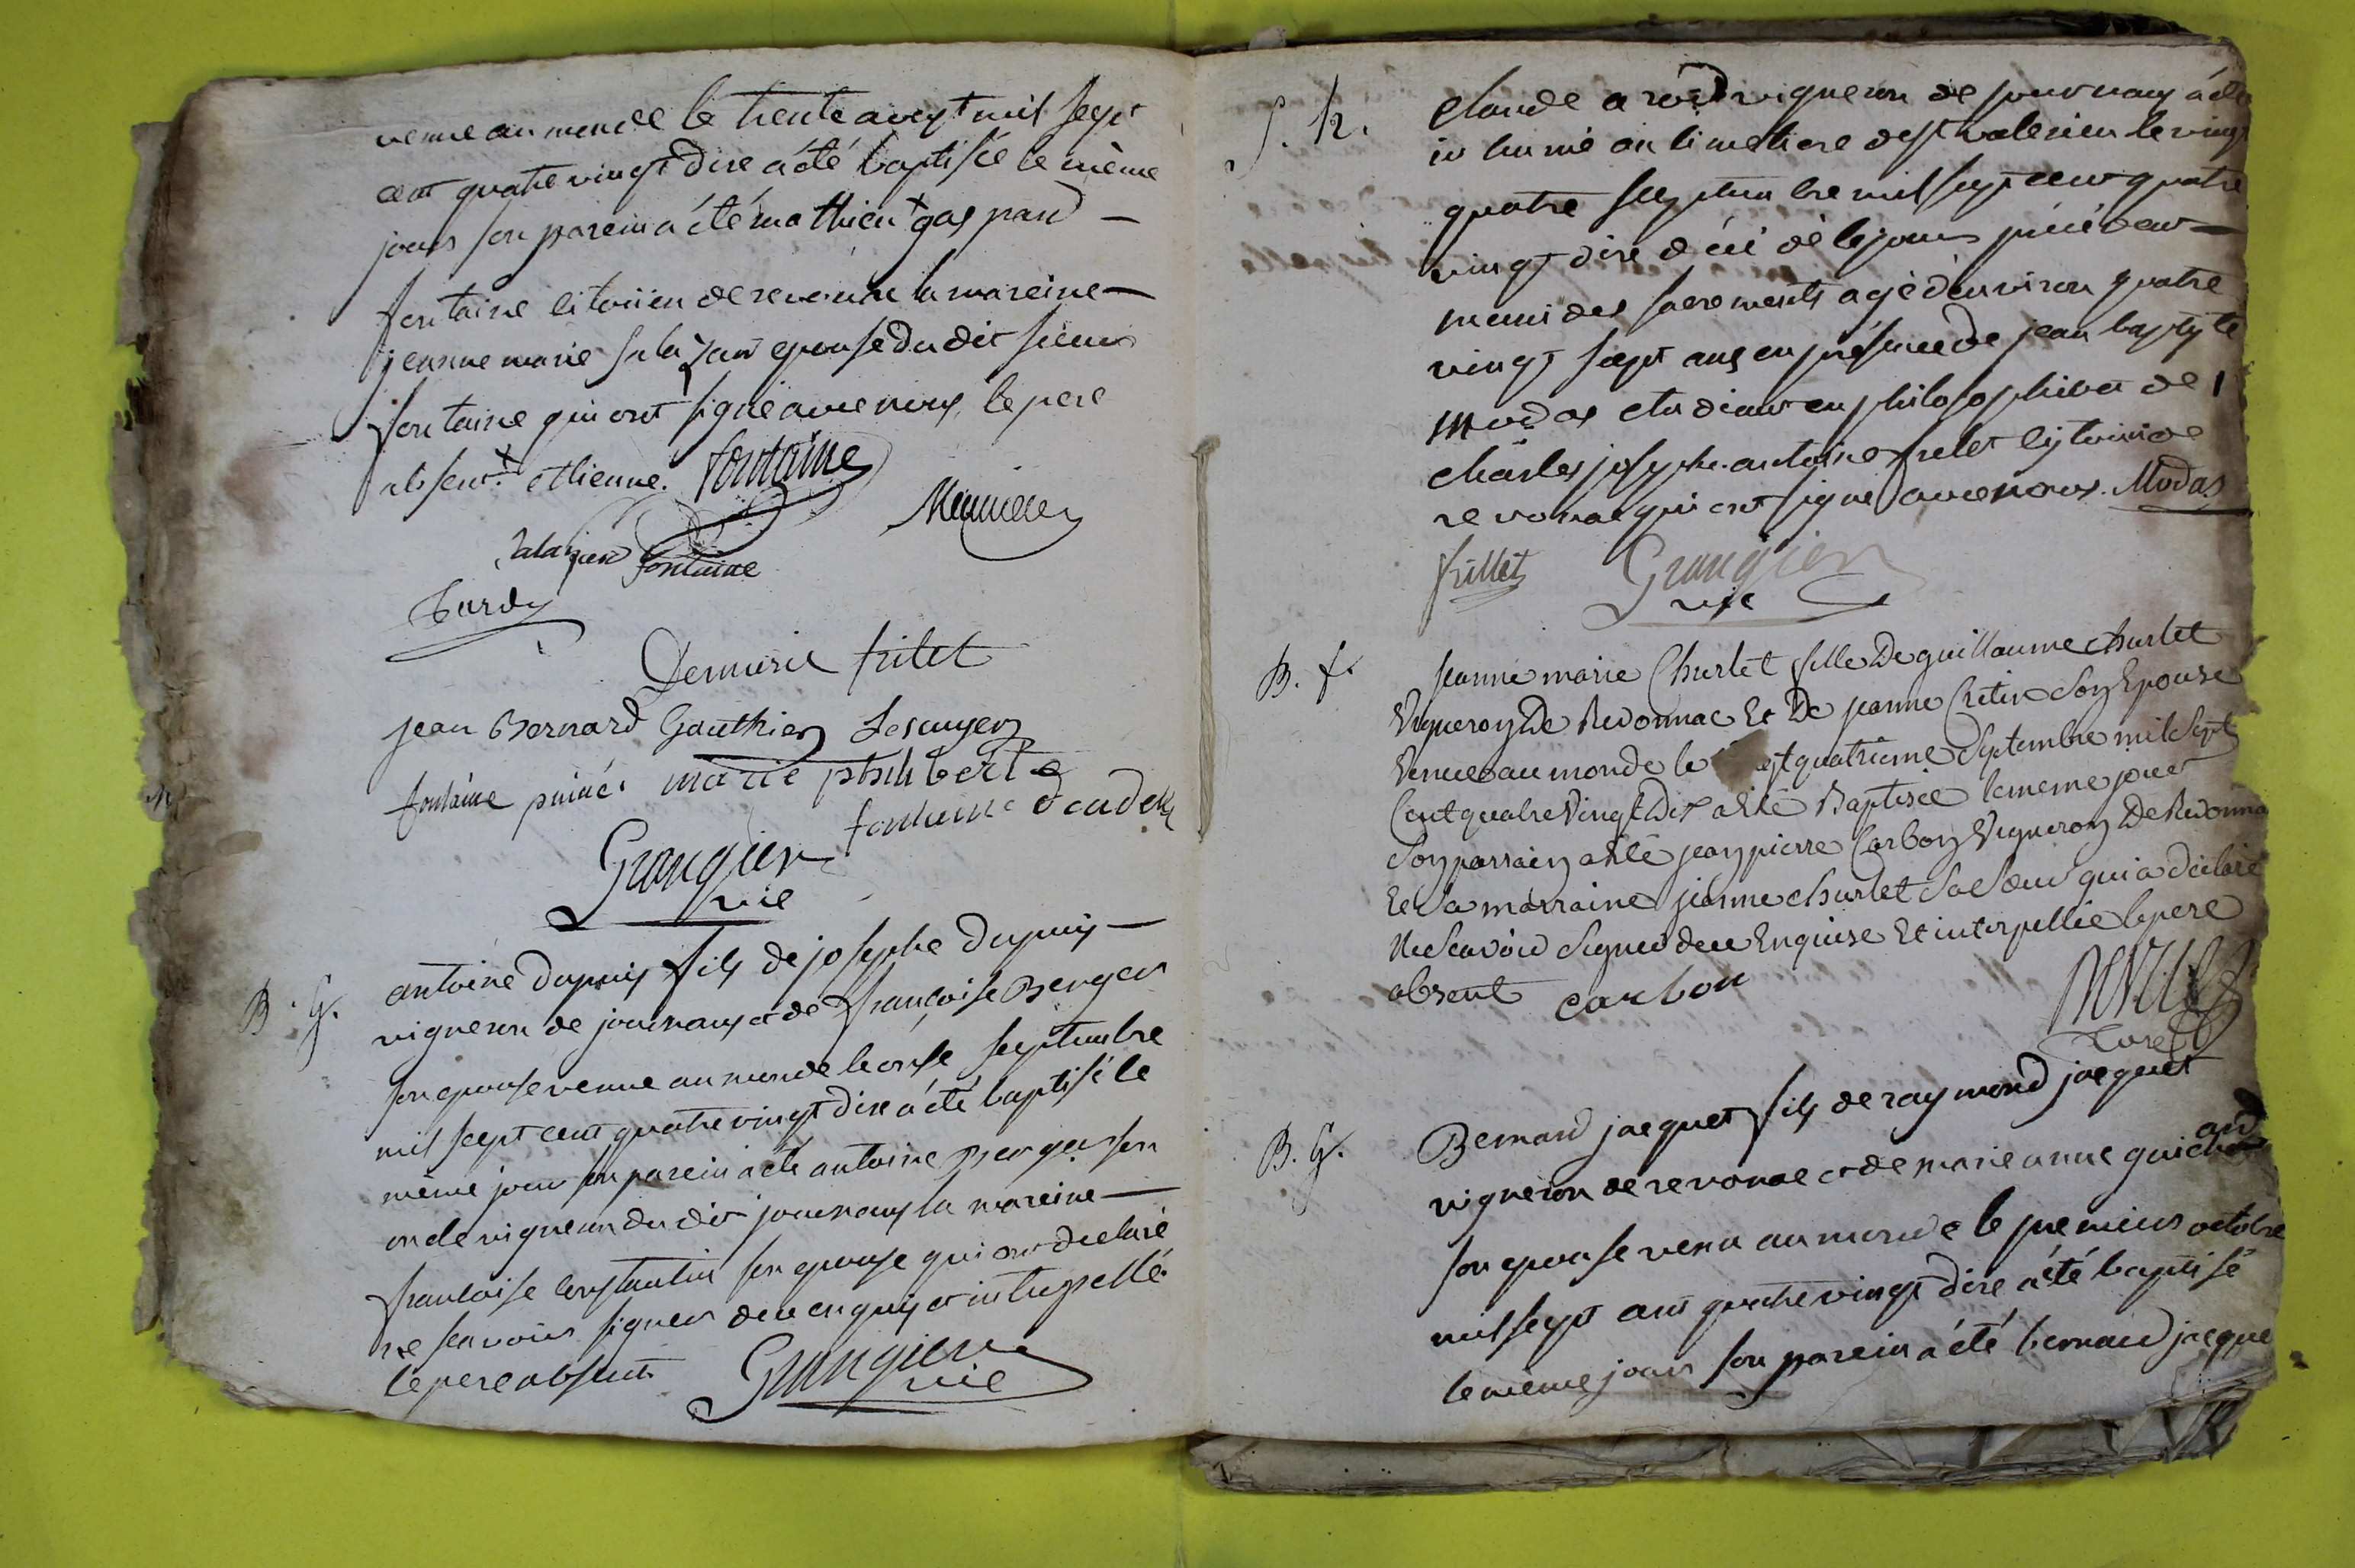 venue au monde le trente aoust mil sept
cent quatre vingt dixe a été baptisée le même
jours son parein a été mathieu + gaspard –
fontaine citoiien de revonnae la mareine –
jeanne marie salazard epouse du dit sieur
fontaine qui ont signé avec nous, le pere
absent. + etienne. fontaine
Meunier
salazard fontaine
Tardy
frilet
jean Bernard Gauthier Lesuyer
fontaine puiné. marie philiberte
fontaine
Grangier
vic
B. G. antoine dupuis fils de josephe dupuis –
vigneron de journans et de françoise Berger
son epouse venue au monde le onse septembre
mil sept cent quatre vingt dixe a été baptisé le
même jour son parein a été antoine Berger son
oncle vigneron du dit journans la mareine –
francoise constantin son epouse qui ont declaré
ne scavoir signer de ce enquis et interpellé
le pere absent Grangier
vic
S. h. Claude a vigneron de journans a été
inhumé au cimetiere de st valerien le vingt
quatre septembre mil sept cent quatre
vingt dixe décédé le jour précédent –
muni des sacrements agé d'environ quatre
vingt sept ans en présence de jean baptiste
modas etudiant en philosophie et de
charles josephe antoine frilet citoiien de
revonnae qui ont signé avec nous. Modas
frillet Grangier
vic
B. f. jeanne marie Churlet fille De guillaume churlet
Vigneron De Revonnac Et De jeanne Cretin Son Epouse
Venue au monde le quatrième Septembre mil Sept
Cent quatre Vingt Dix a été Baptisée le meme jour
Son parrain a été jean pierre Carbon Vigneron De Revonna
Et Sa marraine jeanne churlet Sa Soeur qui a déclaré
Ne Scavoir Signer de ce Enquise Et interpellée le pere
absent carbon
Curé
B. G. Bernard jacquet fils de raymond jacquet
vigneron de revonae et de marie anne guichard
son epouse venu au monde le premier octobre
mil sept cent quatre vingt dixe a été baptisé
le même jour son parein a été bernard jacque